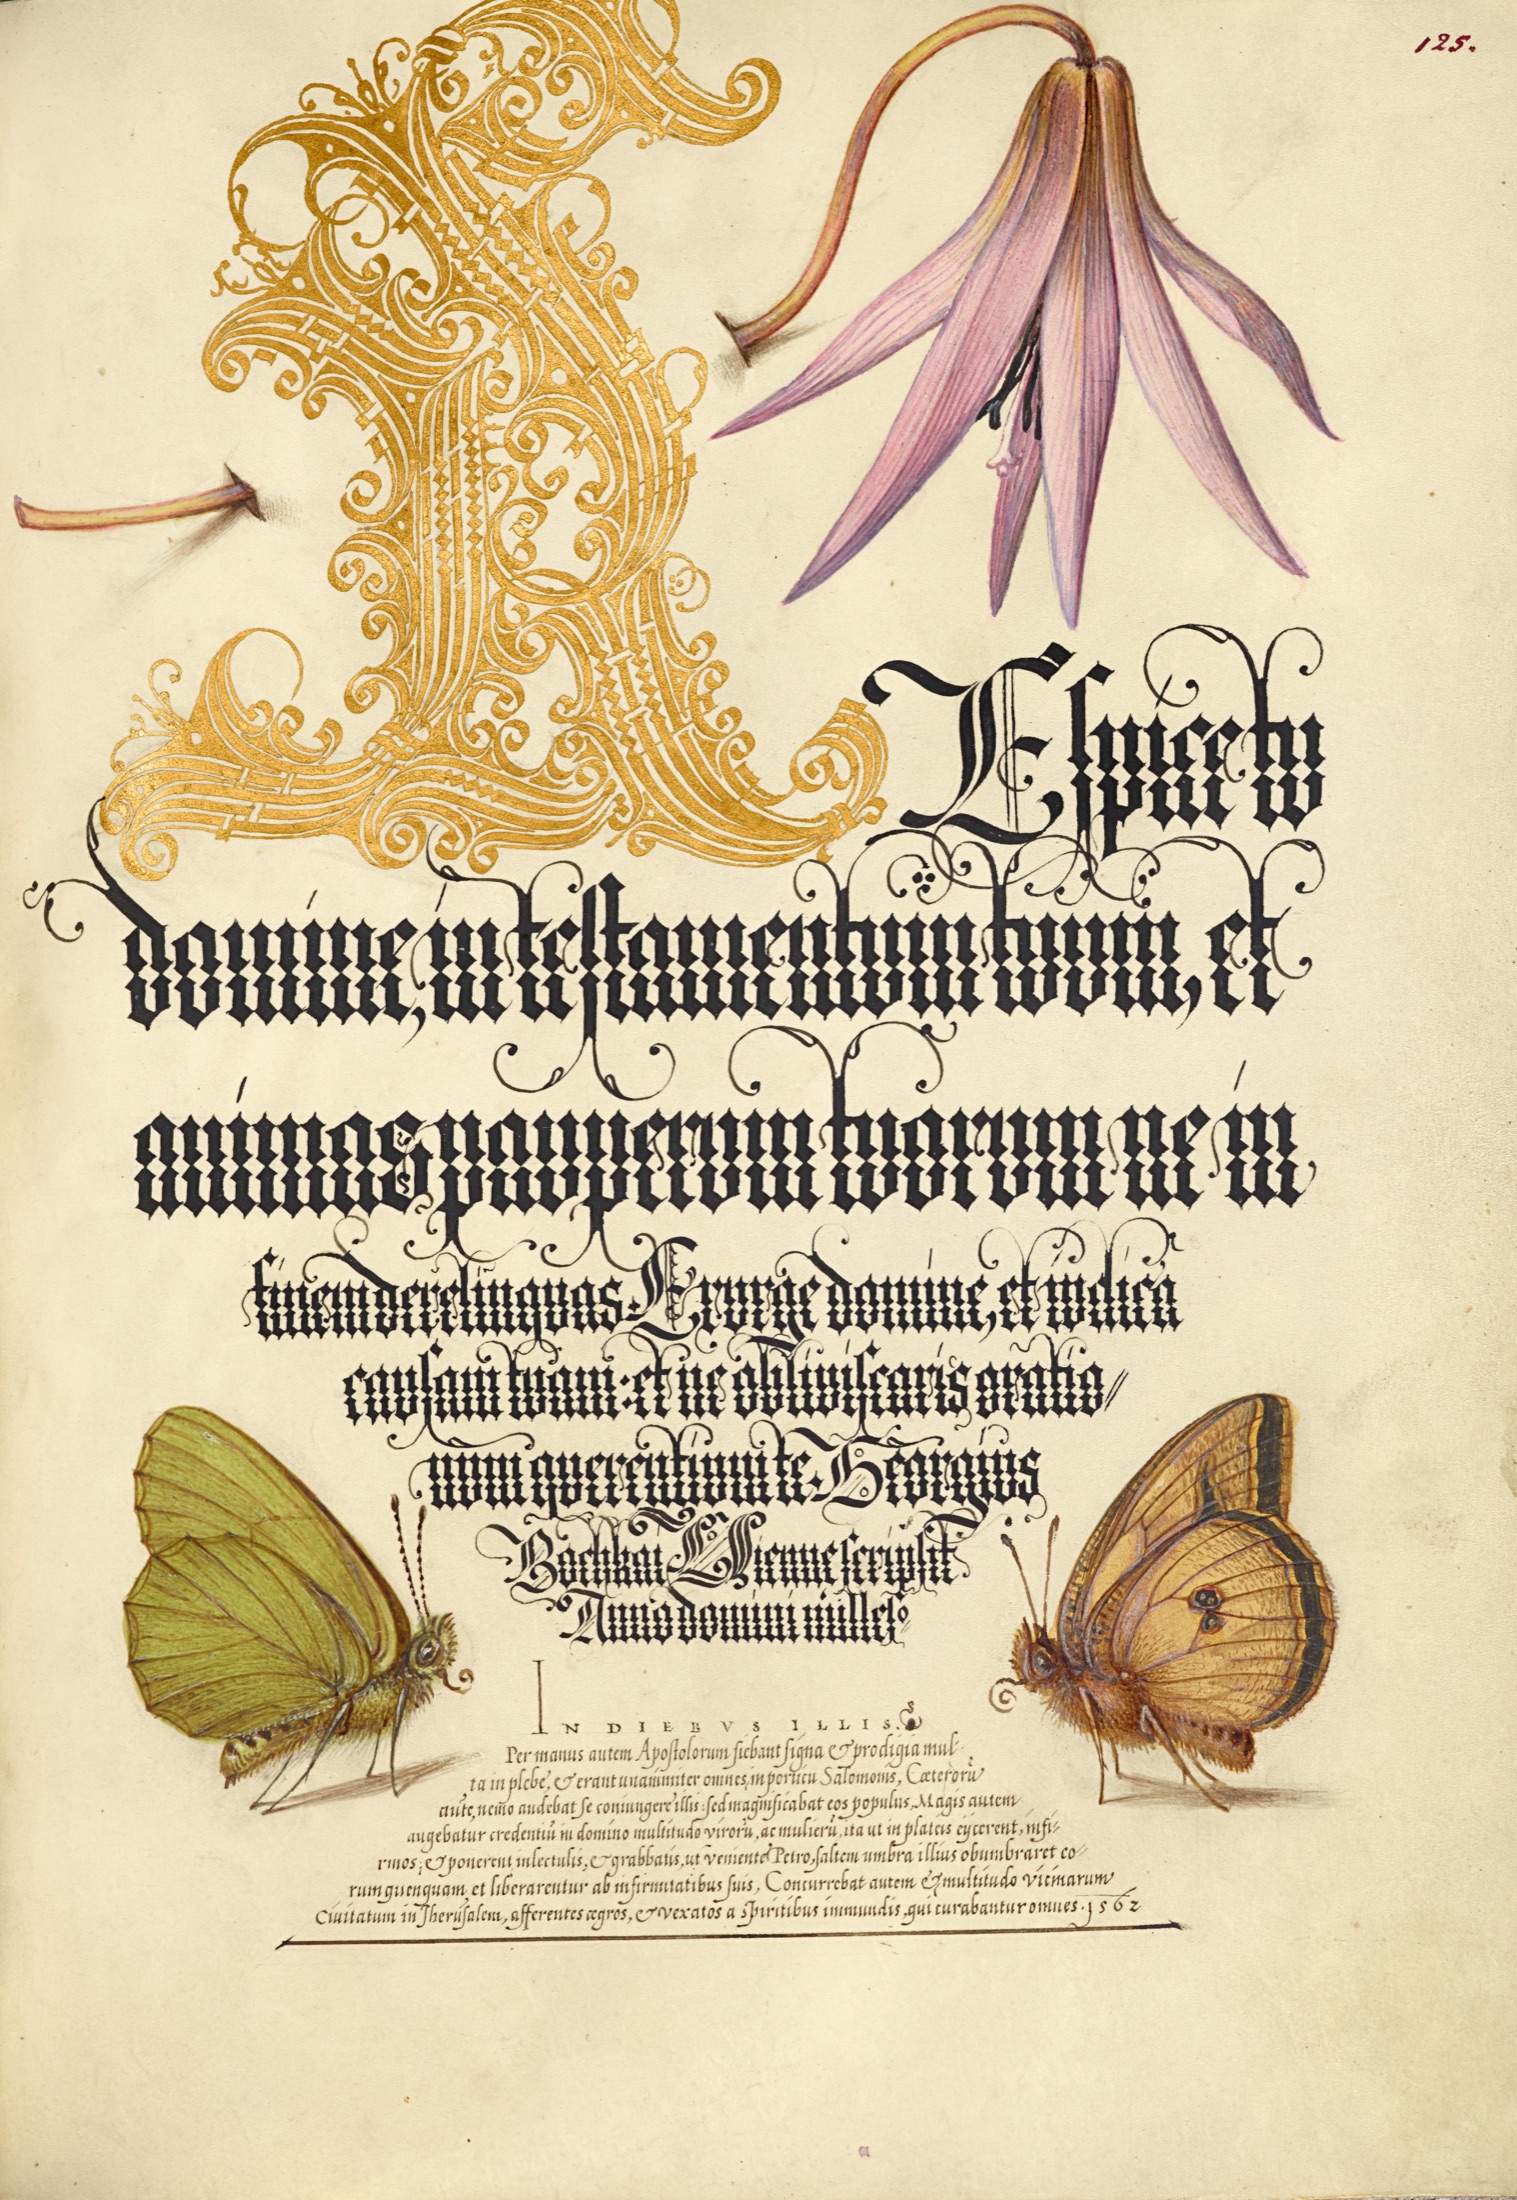 125.
R
Espice tu
domine, in testamentum tuum, et
animas pauperum tuorum ne in
finem derelinquas. Exurge domine, et iudica
causam tuam: et ne obliviscaris oratio//
num querentium te. Georgius
Bochkai Vienne scripsit
Anno domini milleso
IN DIEBVS ILLIS.
Per manus autem Apostolorum fiebant signa & prodigia mul-
ta in plebe, & erant unanimiter omnes in porticu Salomonis, Cæterorũ
autẽ, nemo audebat se coniungere illis: sed magnificabat eos populus, Magis autem
augebatur credentiũ in domino multitudo virorũ, ac mulierũ, ita ut in plateis eijcerent, infir-
mos, & ponerent in lectulis, & grabbatis, ut veniente Petro, saltem umbra illius obumbraret eo-
rum quenquam, et liberarentur ab infirmitatibus suis, Concurrebat autem & multitudo vicinarum
Civitatum in Jherusalem, afferentes ægros, & vexatos a spiritibus immundis, qui curabantur omnes. 1562